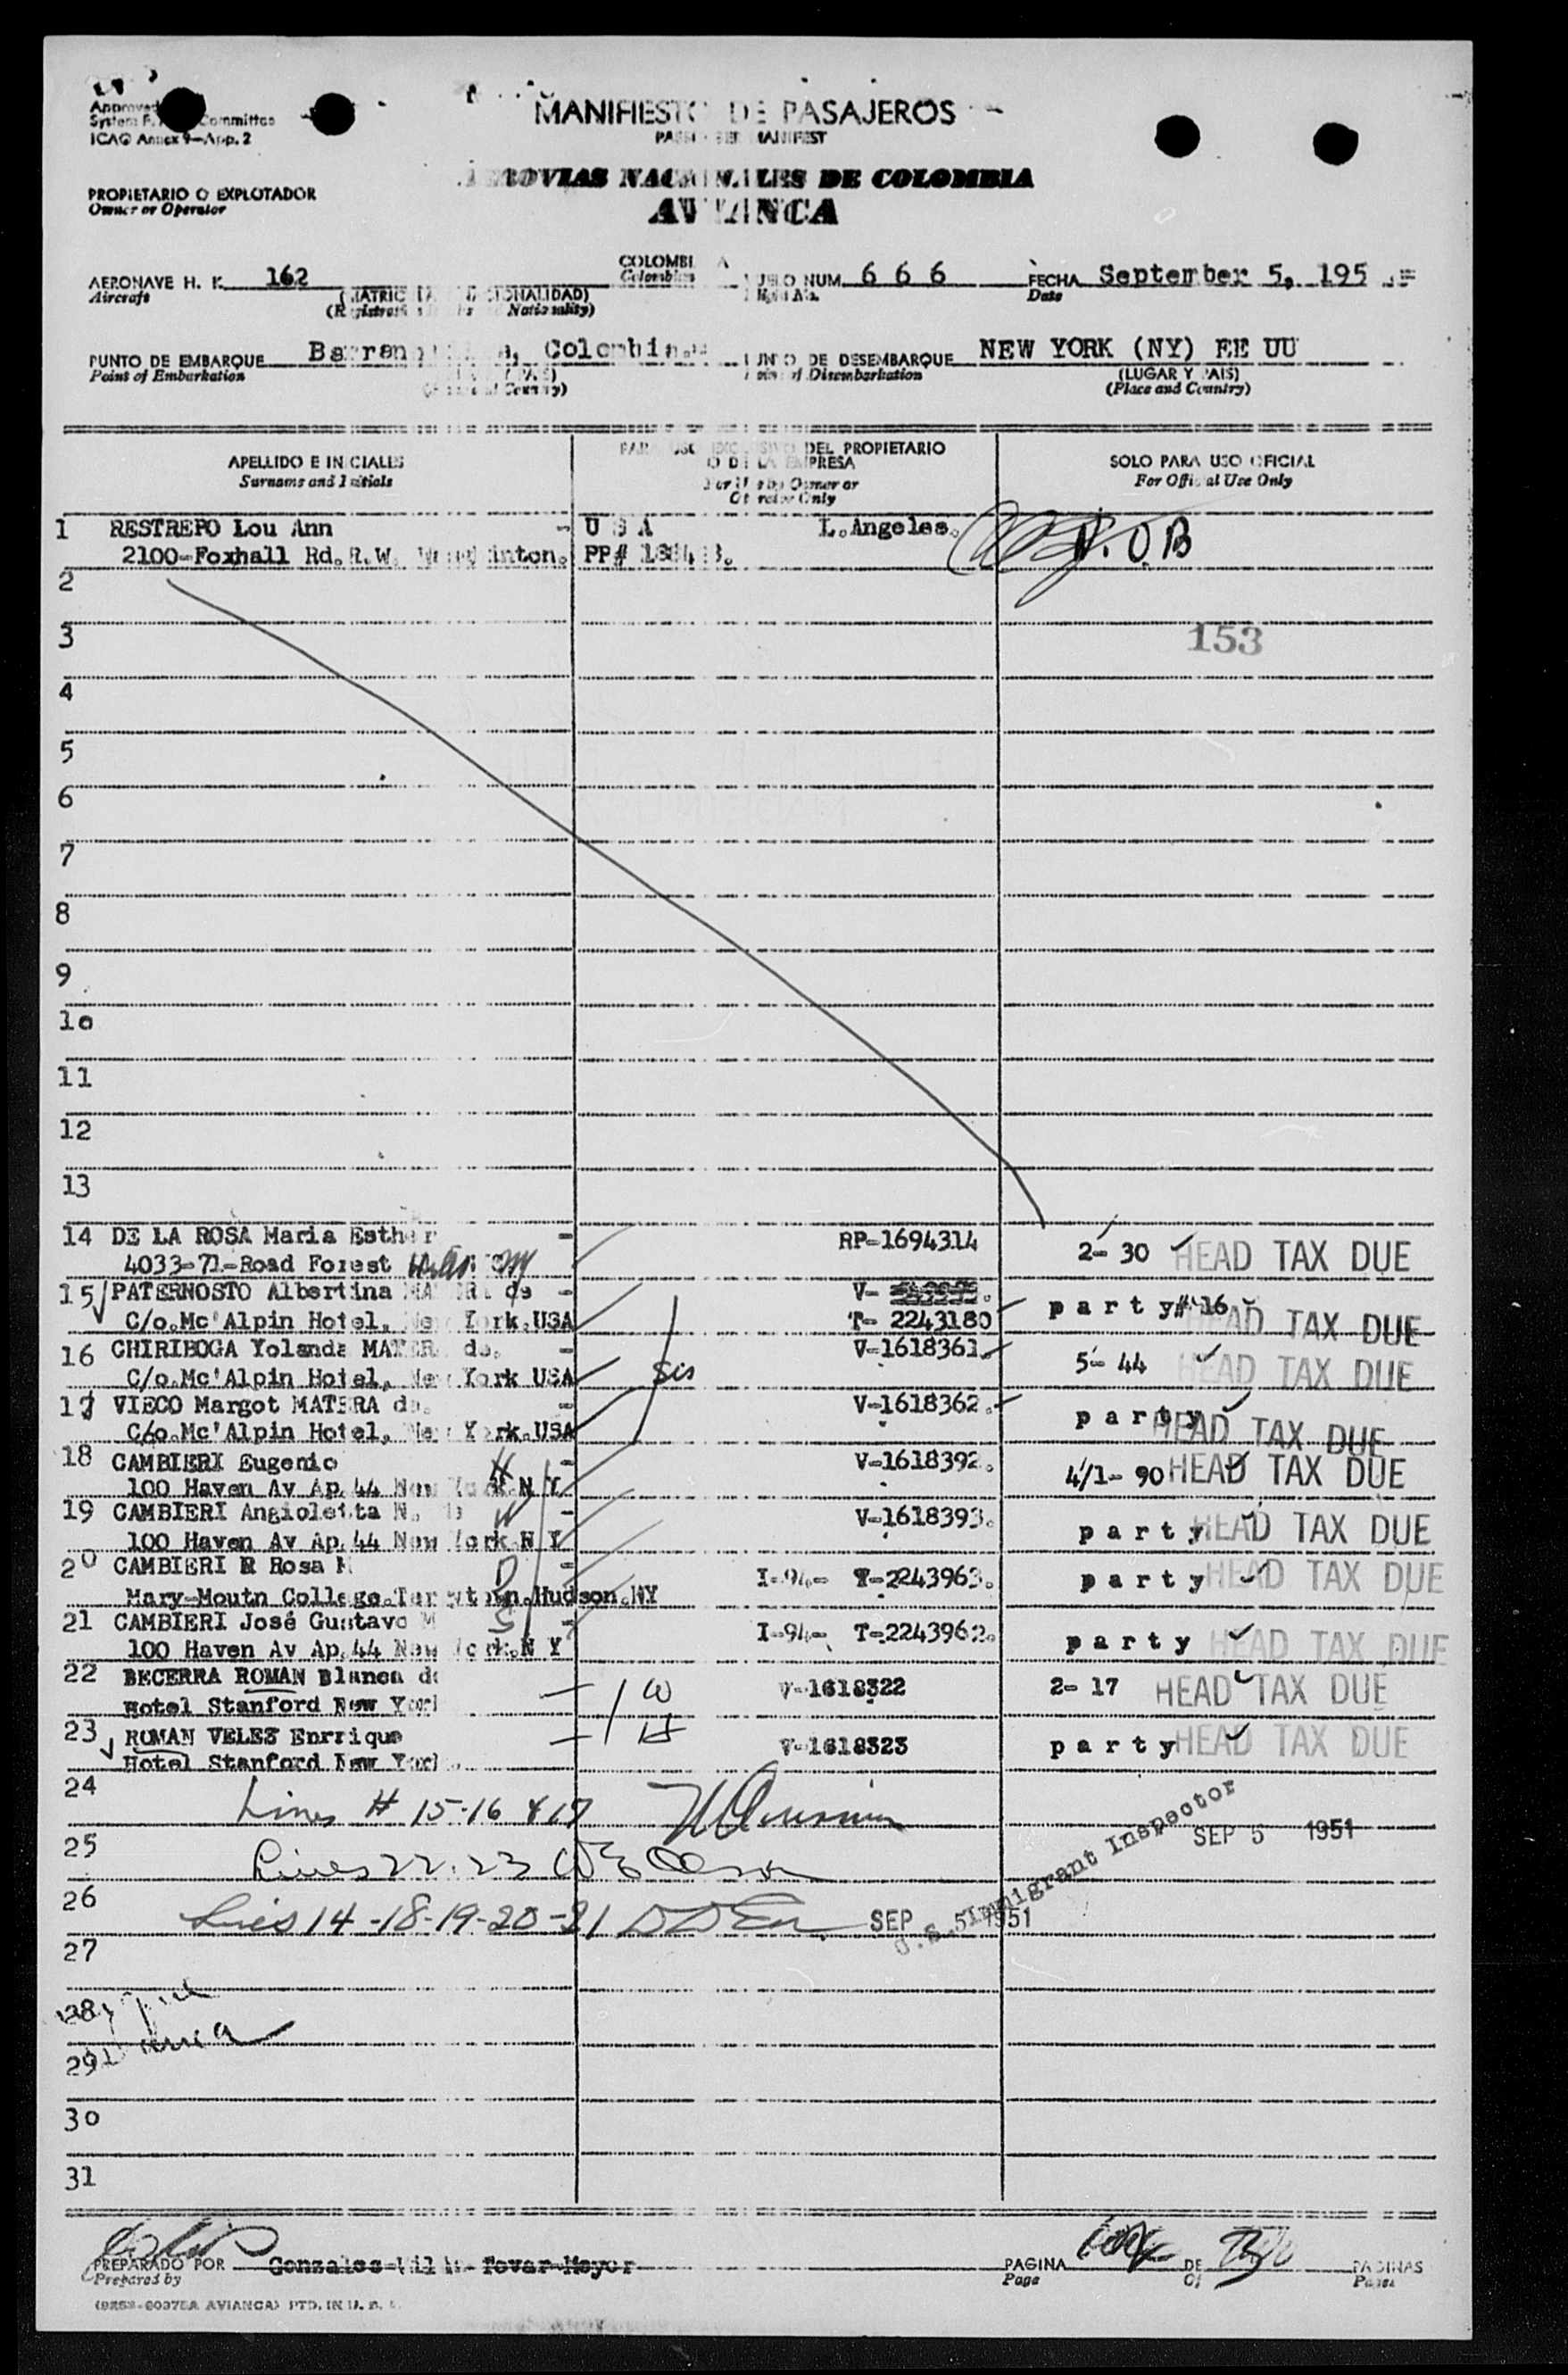 Approved
System Committee
ICAO Annex 9—App. 2
MANIFIESTO DE PASAJEROS
PASSENGER MANIFEST
PROPIETARIO O EXPLOTADOR
Owner or Operator
AEROVIAS NACIONALES DE COLOMBIA
AVIANCA
AERONAVE H. K. 162 COLOMBIA VUELO NUM. 6 6 6 FECHA September 5, 195
Aircraft Colombian Flight No. Date
(MATRICULA NACIONALIDAD)
Nationality)
PUNTO DE EMBARQUE Barranquilla, Colombia PUNTO DE DESEMBARQUE NEW YORK (NY) EE UU
Point of Embarkation Point of Disembarkation
(LUGAR Y PAIS)
(Place and Country)
APELLIDO E INICIALES
Surname and Initials
PARA USO EXCLUSIVO DEL PROPIETARIO
O DE LA EMPRESA
For Use by Owner or
Operator Only
SOLO PARA USO OFICIAL
For Official Use Only
1 RESTREPO Lou Ann - U S A L.Angeles. N.O.B
2100-Foxhall Rd.R.W. PP#
2
3 153
4
5
6
7
8
9
10
11
12
13
14 DE LA ROSA Maria Esther - RP-1694314 2- 30 HEAD TAX DUE
4033-71-Road Forest
15 PATERNOSTO Albertina MATERA de - V- party #16 HEAD TAX DUE
C/o.Mc'Alpin Hotel, New York.USA T- 2243180
16 CHIRIBOGA Yolanda MATERA de. - V-1618361. 5- 44 HEAD TAX DUE
C/o.Mc'Alpin Hotel, New York USA sis
17 VIECO Margot MATERA de. - V-1618362. party HEAD TAX DUE
C/o.Mc'Alpin Hotel, New York.USA
18 CAMBIERI Eugenio H - V-1618392. 4/1- 90 HEAD TAX DUE
100 Haven Av Ap.44 New York.N Y
19 CAMBIERI Angioletta N. de W - V-1618393. party HEAD TAX DUE
100 Haven Av Ap.44 New York.N Y
20 CAMBIERI R Rosa D - I-94- T-2243963. party HEAD TAX DUE
Mary-Moutn College.Tarrytown.Hudson.NY
21 CAMBIERI José Gustavo M S - I-94- T-2243962. party HEAD TAX DUE
100 Haven Av Ap.44 New York.N Y
22 BECERRA ROMAN Blanca de W V-1618322 2- 17 HEAD TAX DUE
Hotel Stanford New York
23 ROMAN VELEZ Enrrique H V-1618323 party HEAD TAX DUE
Hotel Stanford New York.
24 Lines # 15-16 & 17
U.S. Immigrant Inspector
SEP 5 1951
25 Lines 22.23
26 Lines 14-18-19-20-21 SEP 5 1951
27
28
29
30
31
PREPARADO POR Gonzales-Tovar-Meyer PAGINA DE PAGINAS
Prepared by Page Of Pages
AVIANCA) PTD. IN U. S.